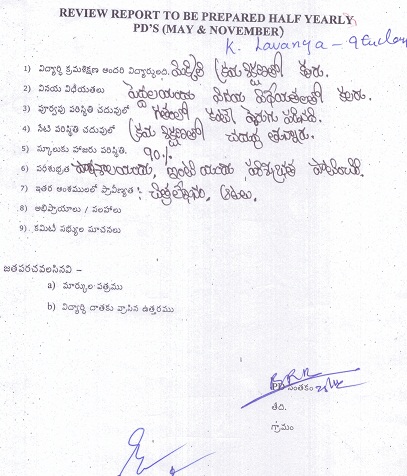 REVIEW REPORT TO BE PREPARED HALF YEARLY
PD'S (MAY & NOVEMBER)
K. Lavanya –
1) విద్యార్థి క్రమశిక్షణ అందరి విద్యార్థులది. క్రమ శిక్షణతో కలరు.
2) వినయ విధేయతలు పెద్దలయందు వినయ విధేయతలతో కలరు.
3) పూర్వపు పరిస్థితి చదువులో గతంలో కంటే
4) నేటి పరిస్థితి చదువులో క్రమ శిక్షణతో
5) స్కూలుకు హాజరు పరిస్థితి. 90%
6) పరిశుభ్రత పాఠశాలయందు, ఇంటి యందు పరిశుభ్రత
7) ఇతర అంశములలో ప్రావీణ్యత : చిత్రలేఖనం, ఆటలు.
8) అభిప్రాయాలు / సలహాలు
9) కమిటీ సభ్యుల సూచనలు
జతపరచవలసినవి –
a) మార్కుల పత్రము
b) విద్యార్థి దాతకు వ్రాసిన ఉత్తరము
సంతకం
తేది.
గ్రామం